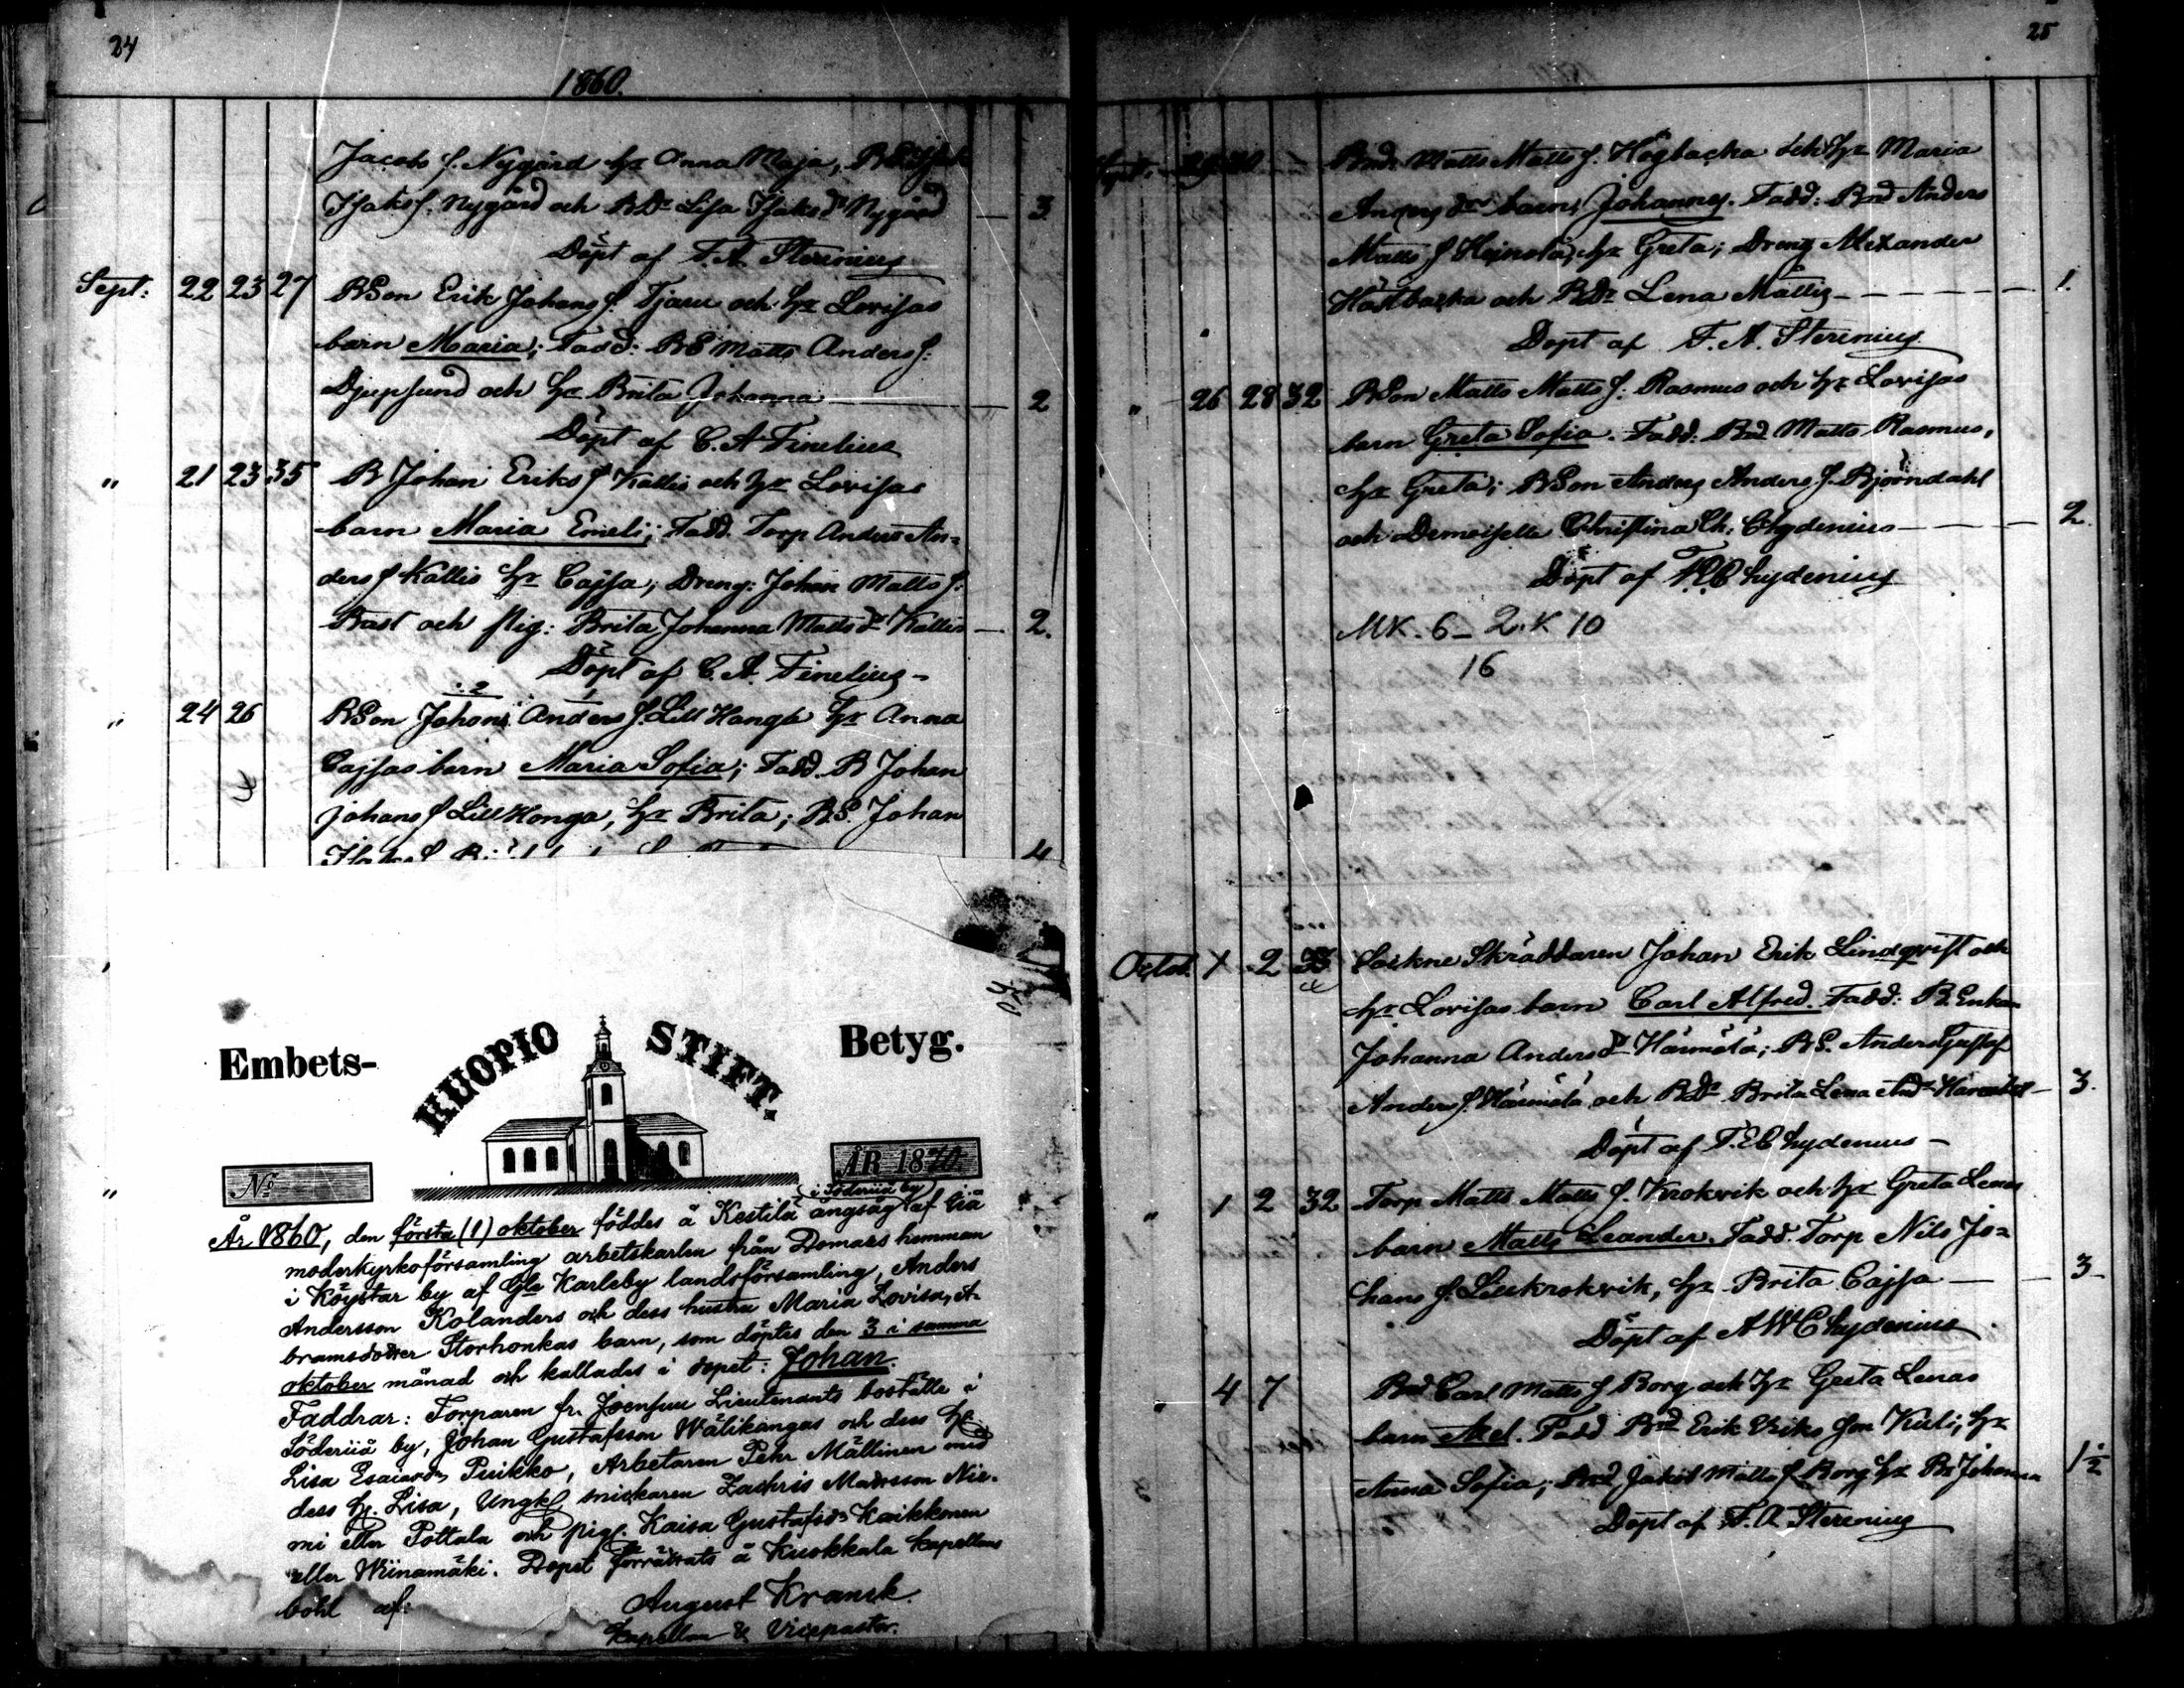 24
1860.
Jacobs f. Nygård hr Anna Maja,
Isaks f. Nygård och BDr Lisa Isaks dr Nygård — 3.
Döpt af F. A. Sterenius
Sept: 22 23 27 BSon Erik Johans f. Tjaru och hr Lovisas
barn Maria; Fadd: BS Matts Anders f.
Djupsund och hr Brita Johanna — 2
Döpt af C. A. Finelius
" 21 23 35 B Johan Eriks f Kallis och hr Lovisas
barn Maria Emeli; Fadd. Torp Anders An=
ders f Kallis hr Cajsa; Dreng: Johan Matts f.
Bast och Pig: Brita Johanna Matts dr Kallis — 2.
Döpt af C. A. Finelius —
" 24 26 BSon Johans Anders f. Lill Honga hr Anna
Cajsas barn Maria Sofia; Fadd. B Johan
Johans f Lill Honga, hr Brita; BS. Johan
4
Embets-
KUOPIO STIFT.
Betyg.
No
ÅR 1870
i Söderiiå by
År 1860, den första (1) oktober föddes å Kestilä ångsåg af Iiå
moderkyrkoförsamling arbetskarlen från Domars hemman
i Köystar by af Gla Karleby landsförsamling, Anders
Andersson Kolanders och dess hustru Maria Lovisa, A-
bramsdotter Storhonkas barn, som döptes den 3 i samma
oktober månad och kallades i dopet: Johan.
Faddrar: Torparen fr. Joensuu Lieutenants boställe i
Söderiiå by, Johan Gustafsson Wälikangas och dess h.
Lisa Esaiasdr Puikko, Arbetaren Pehr Mällinen med
dess h. Lisa, Ungk. snickaren Zachris Madsson Nie-
mi eller Pottala och pig. Kaisa Gustafsdr Kaikkonen
eller Wiinamäki. Dopet förrättats å Kuokkala kapellans
bohl af:
August Kranck.
Kapellan & Vicepastor.
25
Sept. Bnd. Matts Matts f. Högbacka och hr Maria
Anders drs barn, Johannes. Fadd: Bnd Anders
Matts f Hejnola, hr Greta; Dreng Alexander
Hästbacka och BDr Lena Mattis — 1.
Döpt af F. A. Sterenius
" 26 28 32 BSon Matts Matts f. Rasmus och hr Lovisas
barn Greta Sofia. Fadd: Bnd Matts Rasmus,
hr Greta; BSon Anders Anders f. Björndahl
och Demoiselle Christina Ch: Chydenius — 2.
Döpt af F. E. Chydenius
MK. 6 — 2. K 10
16
Octob. 1 2 33 Sockne Skräddaren Johan Erik Lindqvist och
hr Lovisas barn Carl Alfred. Fadd: B. Enkan
Johanna Anders dr Härmälä; BS. Anders Gustaf
Anders f. Härmälä och BDr Brita Lena — 3.
Döpt af F. E. Chydenius —
" 1 2 32 Torp Matts Matts f. Krokvik och hr Greta Lenas
barn Matts Leander. Fadd. Torp Nils Jo=
hans f. Lillkrokvik, hr Brita Cajsa — 3
Döpt af A W Chydenius
4 7 Bnd Carl Matts f Borg och hr Greta Lenas
barn Axel. Fadd Bnd Erik Eriks son Kuli, hr
Anna Sofia; Bnd Jakob Matts f Borg hr Br Johanna 1 1/2
Döpt af F. A. Sterenius